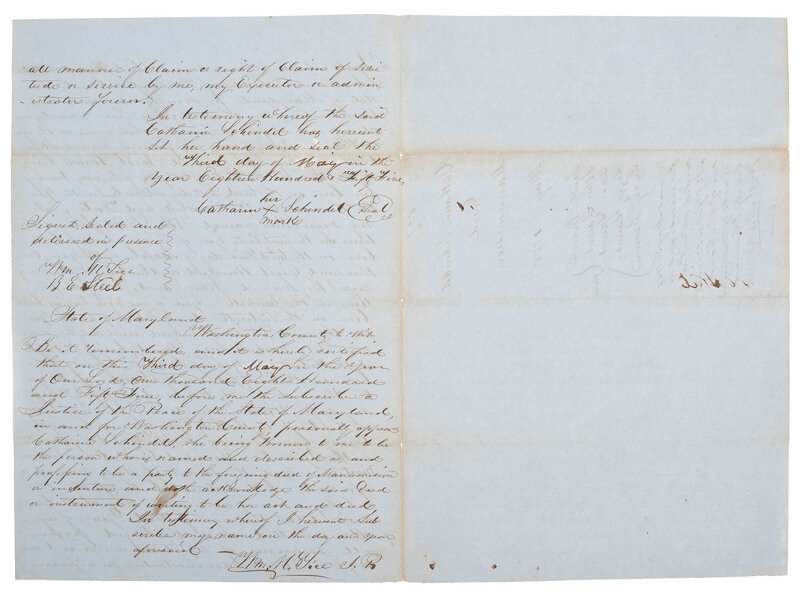 all manner of Claim or right of Claim of Servi
tude or service by me, my Executors or admin
istrators forever.
In testimony whereof the said
Catharin Schindel has hereunto
set her hand and seal the
Third day of May in the
Year Eighteen Hundred & Fift Five,
her
Catharin + Schindel Seal
mark
Signed, sealed and
delivered in presence
of
Wm. N.
B E Steel
State of Maryland
Washington County to Wit
Be it remembered and it is hereby certified
that on this Third day of May in the Year
of Our Lord, One thousand Eight Hundred
and Fift Five, before me the Subscriber a
Justice of the Peace of the State of Maryland,
in and for Washington County personally appears
Catharin Schindel, she being known to me to be
the person who is named and described as and
professing to be a party to the foregoing deed of Manumission
or indenture and doth acknowledge the said Deed
or instrument of writing to be her act and deed,
In testimony whereof I hereunto Sub
scribe my name on the day and year
aforesaid
Wm. N. J. P.